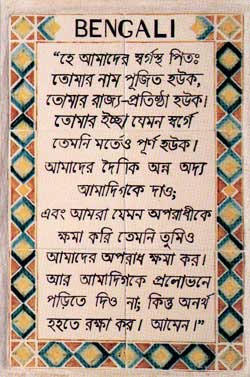 BENGALI
"হে আমাদের স্বর্গস্থ পিতঃ
তোমার নাম পূজিত হউক,
তোমার রাজ্য-প্রতিষ্ঠা হউক।
তোমার ইচ্ছা যেমন স্বর্গে
তেমনি মর্তেও পূর্ণ হউক।
আমাদের দৈনিক অন্ন অদ্য
আমাদিগকে দাও;
এবং আমরা যেমন অপরাধীকে
ক্ষমা করি তেমনি তুমিও
আমাদের অপরাধ ক্ষমা কর।
আর আমাদিগকে প্রলোভনে
পড়িতে দিও না; কিন্তু অনর্থ
হহতে রক্ষা কর। আমেন।"